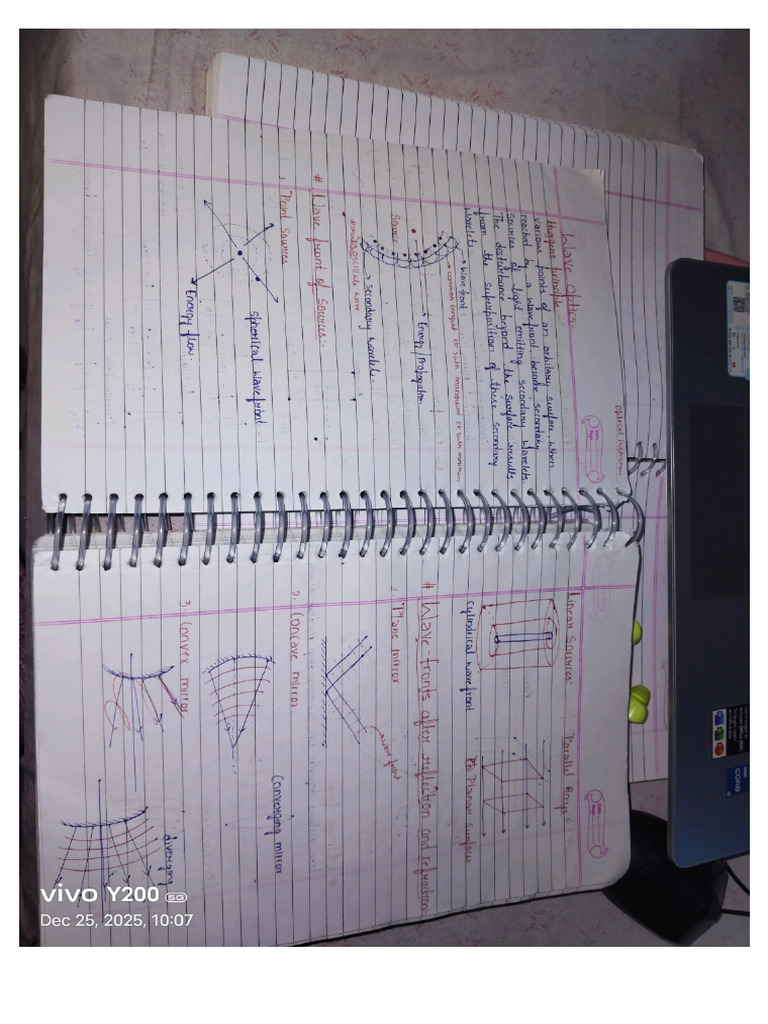 Optical instrument
Wave optics
Huygens principle
various points of an arbitrary surface, when
reached by a wavefront become secondary
sources of light emitting secondary wavelets.
The disturbance beyond the surface results
from the superposition of these secondary
wavelets
wave front
common tangent
Source
Energy/Propagation
secondary wavelets
# Wave front of sources:-
1. Point Sources
spherical wavefront
Energy flow.
Linear Sources:
Parallel Rays:
cylindrical wavefront
Planar surface
# Wave-fronts after reflection and refraction:
1. Plane mirror
wave front
2. Concave mirror
Converging mirror
3. Convex mirror
diverging
vivo Y200 5G
Dec 25, 2025, 10:07